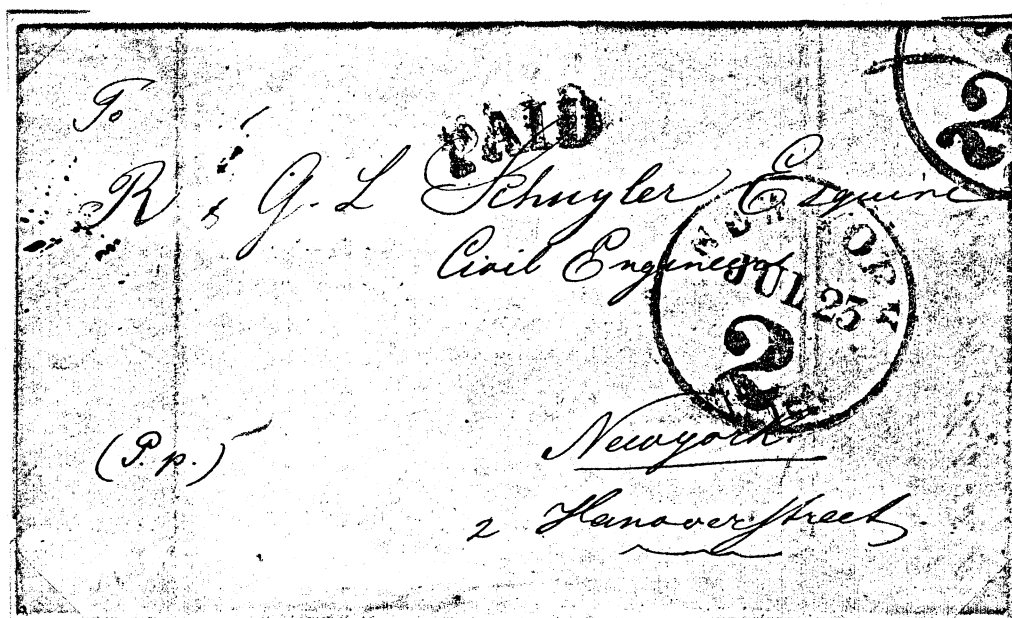 To
PAID
R & G. L Schuyler Esquire
Civil Engineers
NEW YORK
JUL 23
2
2
(P. p.)
Newyork.
2 Hanoverstreet.